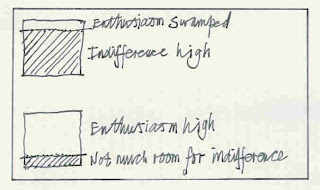 Enthusiasm Swamped
Indifference high
Enthusiasm high
Not much room for indifference